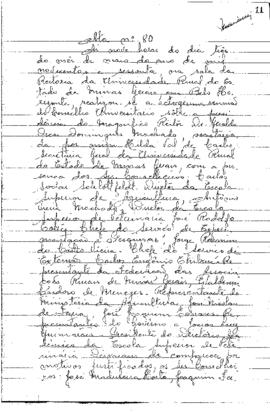 11
Ata nº 80
Às nove horas do dia três
do mês de maio do ano de mil
novecentos e sessenta, na sala da
Reitoria da Universidade Rural do Es-
tado de Minas Gerais em Belo Ho-
rizonte, realizou-se a octogésima reunião
do Conselho Universitário sob a presi-
dência do Magnífico Reitor Dr. Geraldo
Oscar Domingues Machado, secretaria-
da por mim Hilda Val de Castro,
Secretária Geral da Universidade Rural
do Estado de Minas Gerais com a pre-
sença dos Conselheiros: Carlos
Socias Schlottfeldt, Diretor da Escola
Superior de Agricultura, Antônio
Machado, Diretor da Escola
Superior de Veterinária, José Rodolfo
Chefe do Serviço de Experi-
mentação e Pesquisas, Jorge
Vieira, Chefe do Serviço de
Extensão, Carlos Eugênio Thibau, Re-
presentante da Federação das Associa-
ções Rurais de Minas Gerais,
Cardoso de Menezes, Representante do
Ministério da Agricultura, José
de Faria, José Joaquim
presentantes do Governo e
Guimarães, Presidente do Diretório Aca-
dêmico da Escola Superior de Vete-
rinária. Deixaram de comparecer por
motivos justificados, os Conselhei-
ros: José Joaquim Fa-